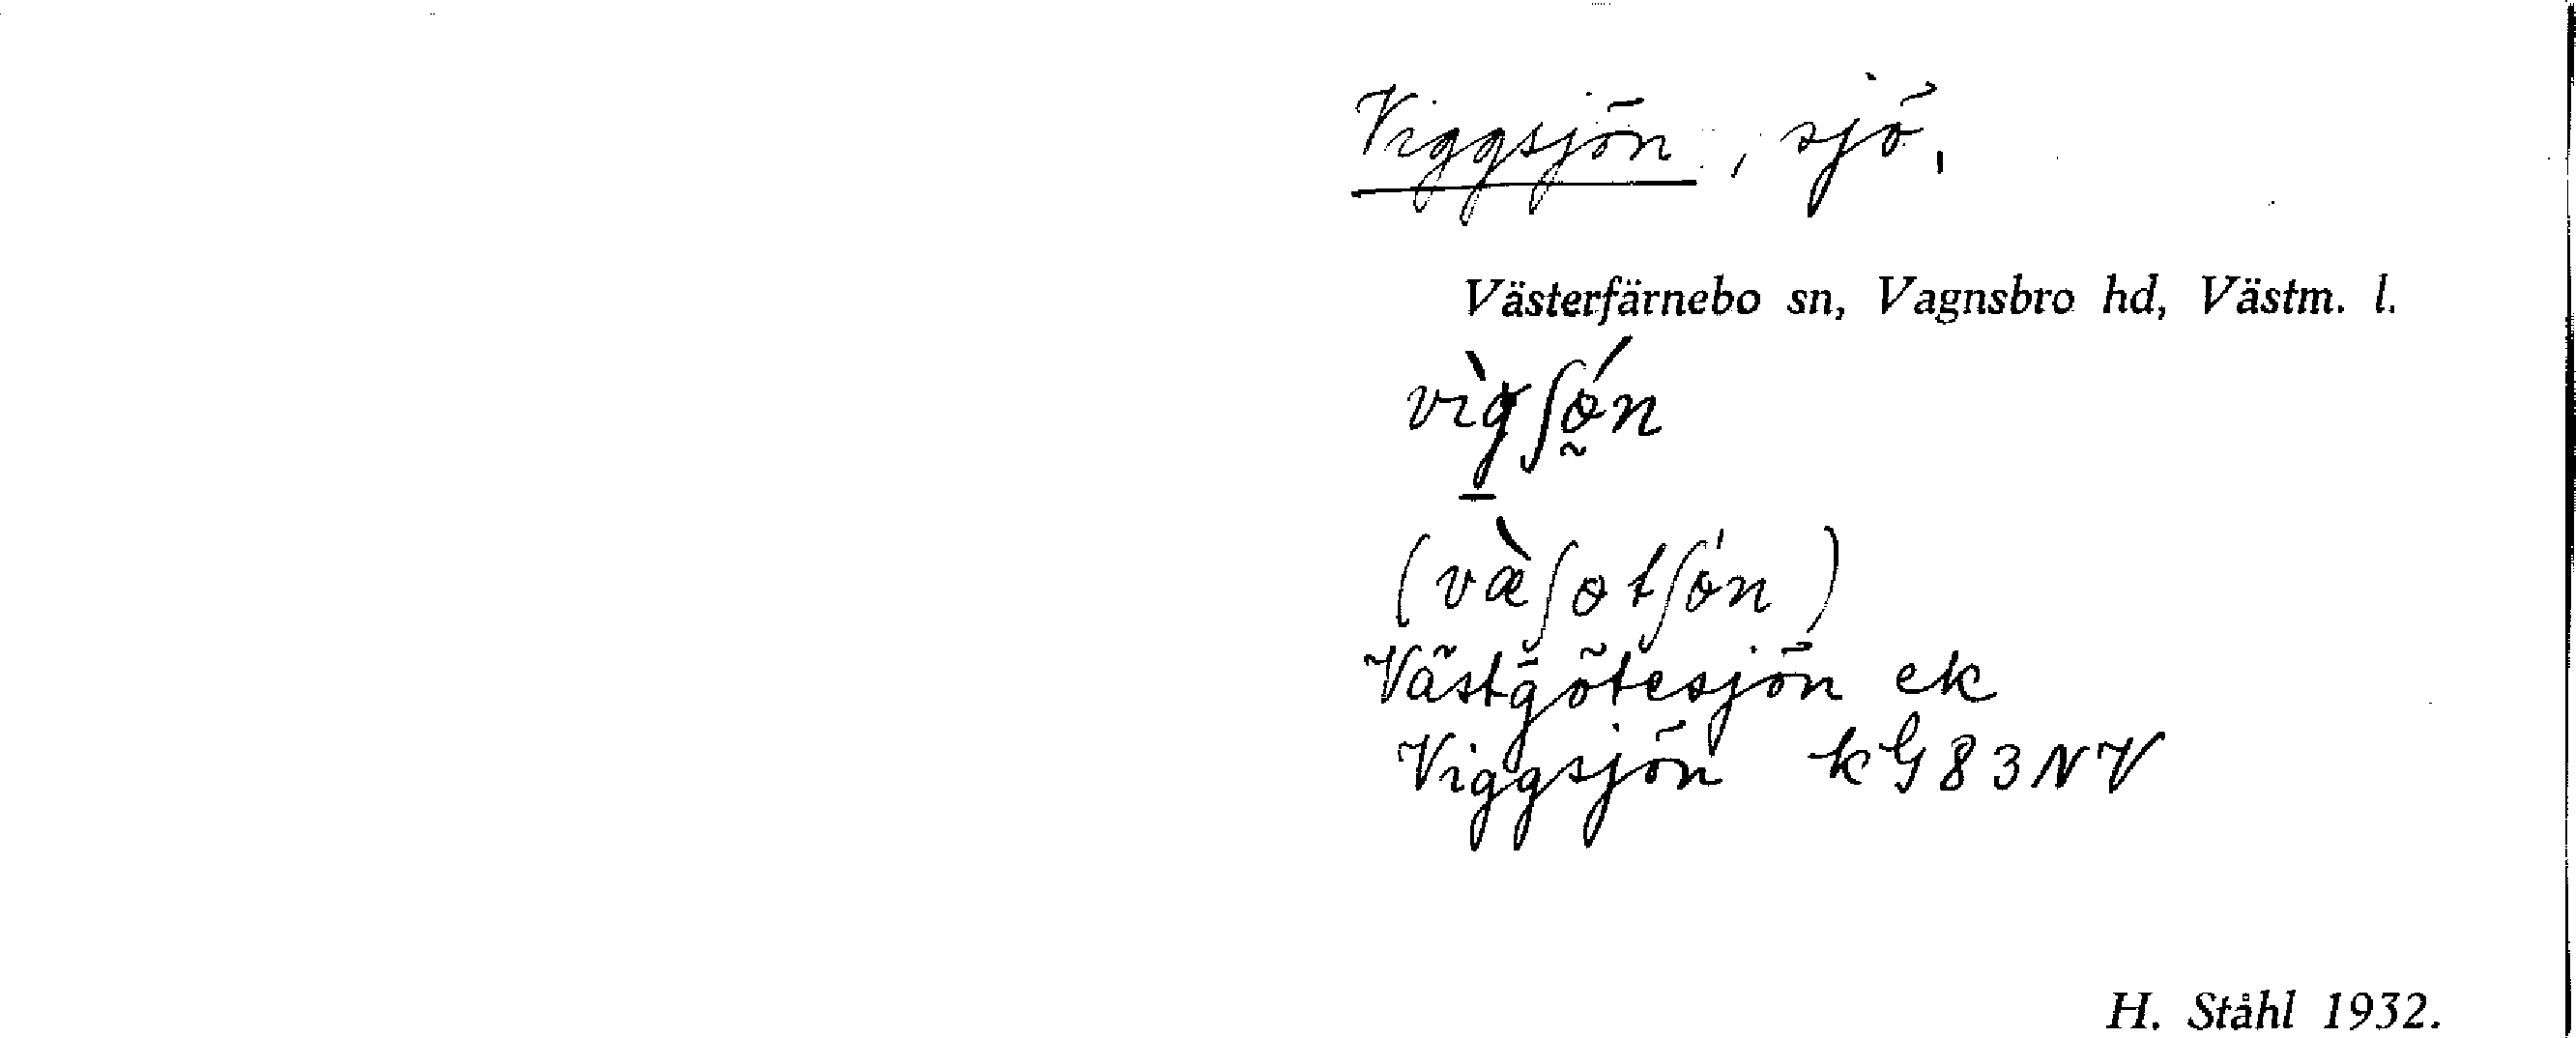 Viggsjön, sjö,
Västerfärnebo sn, Vagnsbro hd, Västm. l.
vìgʃǿ̰n
(væ̀ʃøtʃǿn)
Västgötesjön ek
Viggsjön kG83NV
H. Ståhl 1932.